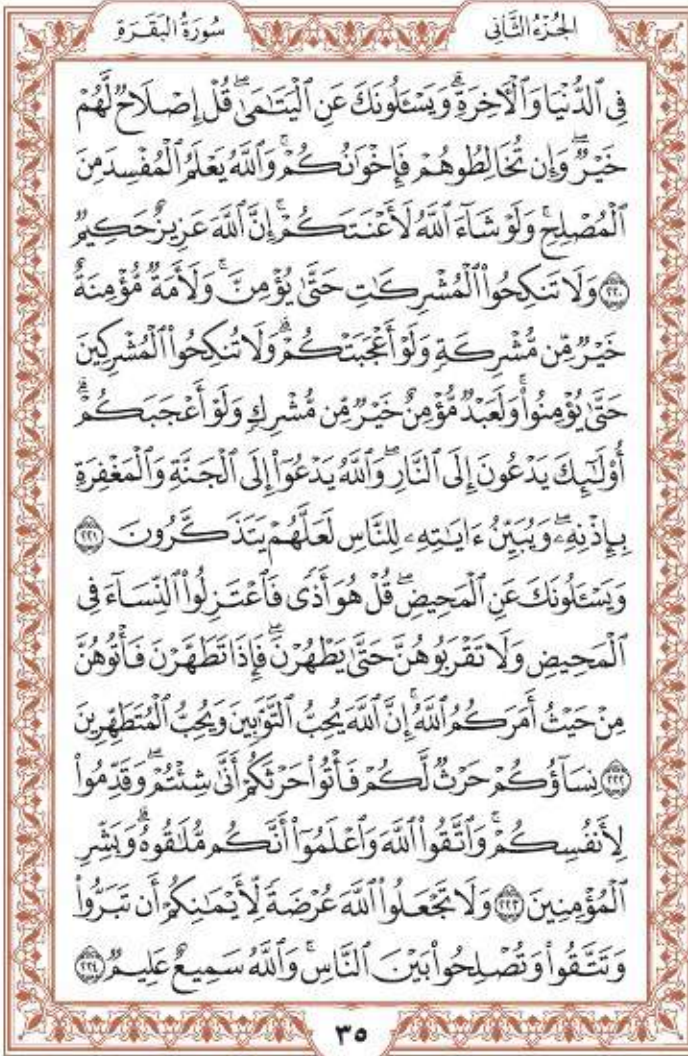 الجُزْءُ الثَّانِي
سُورَةُ الْبَقَرَةِ
فِى ٱلدُّنْيَا وَٱلْأَخِرَةِ ۗ وَيَسْـَٔلُونَكَ عَنِ ٱلْيَتَـٰمَىٰ ۖ قُلْ إِصْلَاحٌ لَّهُمْ
خَيْرٌ ۖ وَإِن تُخَالِطُوهُمْ فَإِخْوَٰنُكُمْ ۚ وَٱللَّهُ يَعْلَمُ ٱلْمُفْسِدَ مِنَ
ٱلْمُصْلِحِ ۚ وَلَوْ شَآءَ ٱللَّهُ لَأَعْنَتَكُمْ ۚ إِنَّ ٱللَّهَ عَزِيزٌ حَكِيمٌ
﴿٢٢٠﴾ وَلَا تَنكِحُوا۟ ٱلْمُشْرِكَـٰتِ حَتَّىٰ يُؤْمِنَّ ۚ وَلَأَمَةٌ مُّؤْمِنَةٌ
خَيْرٌ مِّن مُّشْرِكَةٍ وَلَوْ أَعْجَبَتْكُمْ ۗ وَلَا تُنكِحُوا۟ ٱلْمُشْرِكِينَ
حَتَّىٰ يُؤْمِنُوا۟ ۚ وَلَعَبْدٌ مُّؤْمِنٌ خَيْرٌ مِّن مُّشْرِكٍ وَلَوْ أَعْجَبَكُمْ ۗ
أُو۟لَـٰٓئِكَ يَدْعُونَ إِلَى ٱلنَّارِ ۖ وَٱللَّهُ يَدْعُوٓا۟ إِلَى ٱلْجَنَّةِ وَٱلْمَغْفِرَةِ
بِإِذْنِهِۦ ۖ وَيُبَيِّنُ ءَايَـٰتِهِۦ لِلنَّاسِ لَعَلَّهُمْ يَتَذَكَّرُونَ ﴿٢٢١﴾
وَيَسْـَٔلُونَكَ عَنِ ٱلْمَحِيضِ ۖ قُلْ هُوَ أَذًى فَٱعْتَزِلُوا۟ ٱلنِّسَآءَ فِى
ٱلْمَحِيضِ وَلَا تَقْرَبُوهُنَّ حَتَّىٰ يَطْهُرْنَ ۖ فَإِذَا تَطَهَّرْنَ فَأْتُوهُنَّ
مِنْ حَيْثُ أَمَرَكُمُ ٱللَّهُ ۚ إِنَّ ٱللَّهَ يُحِبُّ ٱلتَّوَّٰبِينَ وَيُحِبُّ ٱلْمُتَطَهِّرِينَ
﴿٢٢٢﴾ نِسَآؤُكُمْ حَرْثٌ لَّكُمْ فَأْتُوا۟ حَرْثَكُمْ أَنَّىٰ شِئْتُمْ ۖ وَقَدِّمُوا۟
لِأَنفُسِكُمْ ۚ وَٱتَّقُوا۟ ٱللَّهَ وَٱعْلَمُوٓا۟ أَنَّكُم مُّلَـٰقُوهُ ۗ وَبَشِّرِ
ٱلْمُؤْمِنِينَ ﴿٢٢٣﴾ وَلَا تَجْعَلُوا۟ ٱللَّهَ عُرْضَةً لِّأَيْمَـٰنِكُمْ أَن تَبَرُّوا۟
وَتَتَّقُوا۟ وَتُصْلِحُوا۟ بَيْنَ ٱلنَّاسِ ۚ وَٱللَّهُ سَمِيعٌ عَلِيمٌ ﴿٢٢٤﴾
٣٥